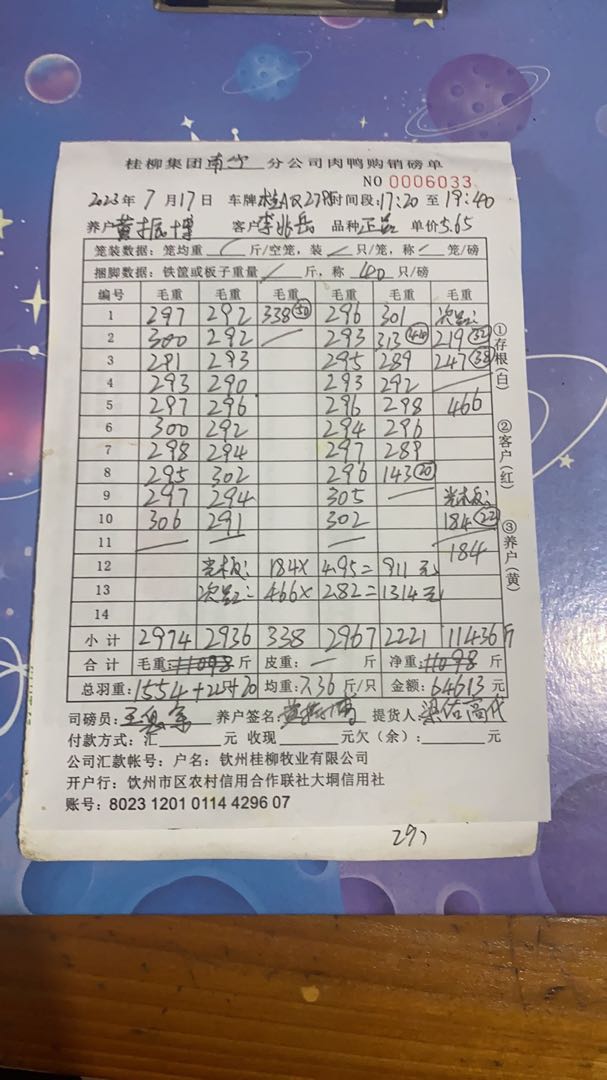 桂柳集团南宁分公司肉鸭购销磅单
NO 0006033
2023年7月17日 车牌 时间段:17:20至19:40
养户黄振博 客户李兆岳 品种正品 单价5.65
笼装数据:笼均重/斤/空笼,装/只/笼,称/笼/磅
捆脚数据:铁筐或板子重量/斤,称40只/磅
编号 毛重 毛重 毛重 毛重 毛重 毛重
1 297 292 338(50) 296 301 次品:
2 300 292 / 293 313(44) 219(32)
3 281 293 295 289 247(38)
4 293 290 293 292 /
5 297 296 296 298 466
6 300 292 294 296
7 298 294 297 289
8 295 302 296 143(20)
9 297 294 305 / 光木板:
10 306 291 302 184(22)
11 / / / 184
12 光木板: 184× 4.95= 911元
13 次品: 466× 2.82= 1314元
14
小计 2974 2936 338 2967 2221 11436斤
合计 毛重:11098斤 皮重:/斤 净重:11098斤
总羽重:1554+ 均重:7.36斤/只 金额:64613元
司磅员: 养户签名:黄振博 提货人:
付款方式:汇 元 收现 元欠(余): 元
公司汇款帐号:户名:钦州桂柳牧业有限公司
开户行:钦州市区农村信用合作联社大垌信用社
账号:8023 1201 0114 4296 07
①存根(白)
②客户(红)
③养户(黄)
297